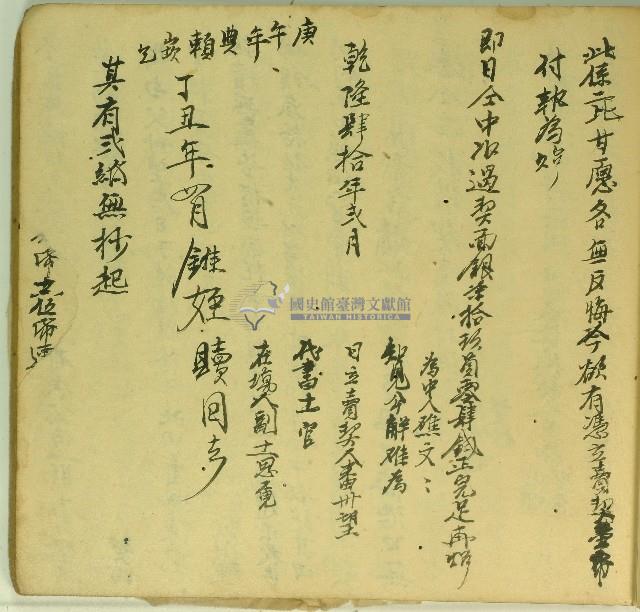 此係二比甘愿各無反悔今欲有憑立賣契壹紙
付執為炤
即日仝中收過契面銀柒拾玖員零肆錢正完足再炤
為中人雄文
知見分解雄為
乾隆肆拾年弍月 日立賣契人番卅望
代書土官
在塲人副土思覓
庚午年典賴崁
丁丑年四月 姪贖回去
其有弍紙無抄起
國史館臺灣文獻館
TAIWAN HISTORICA